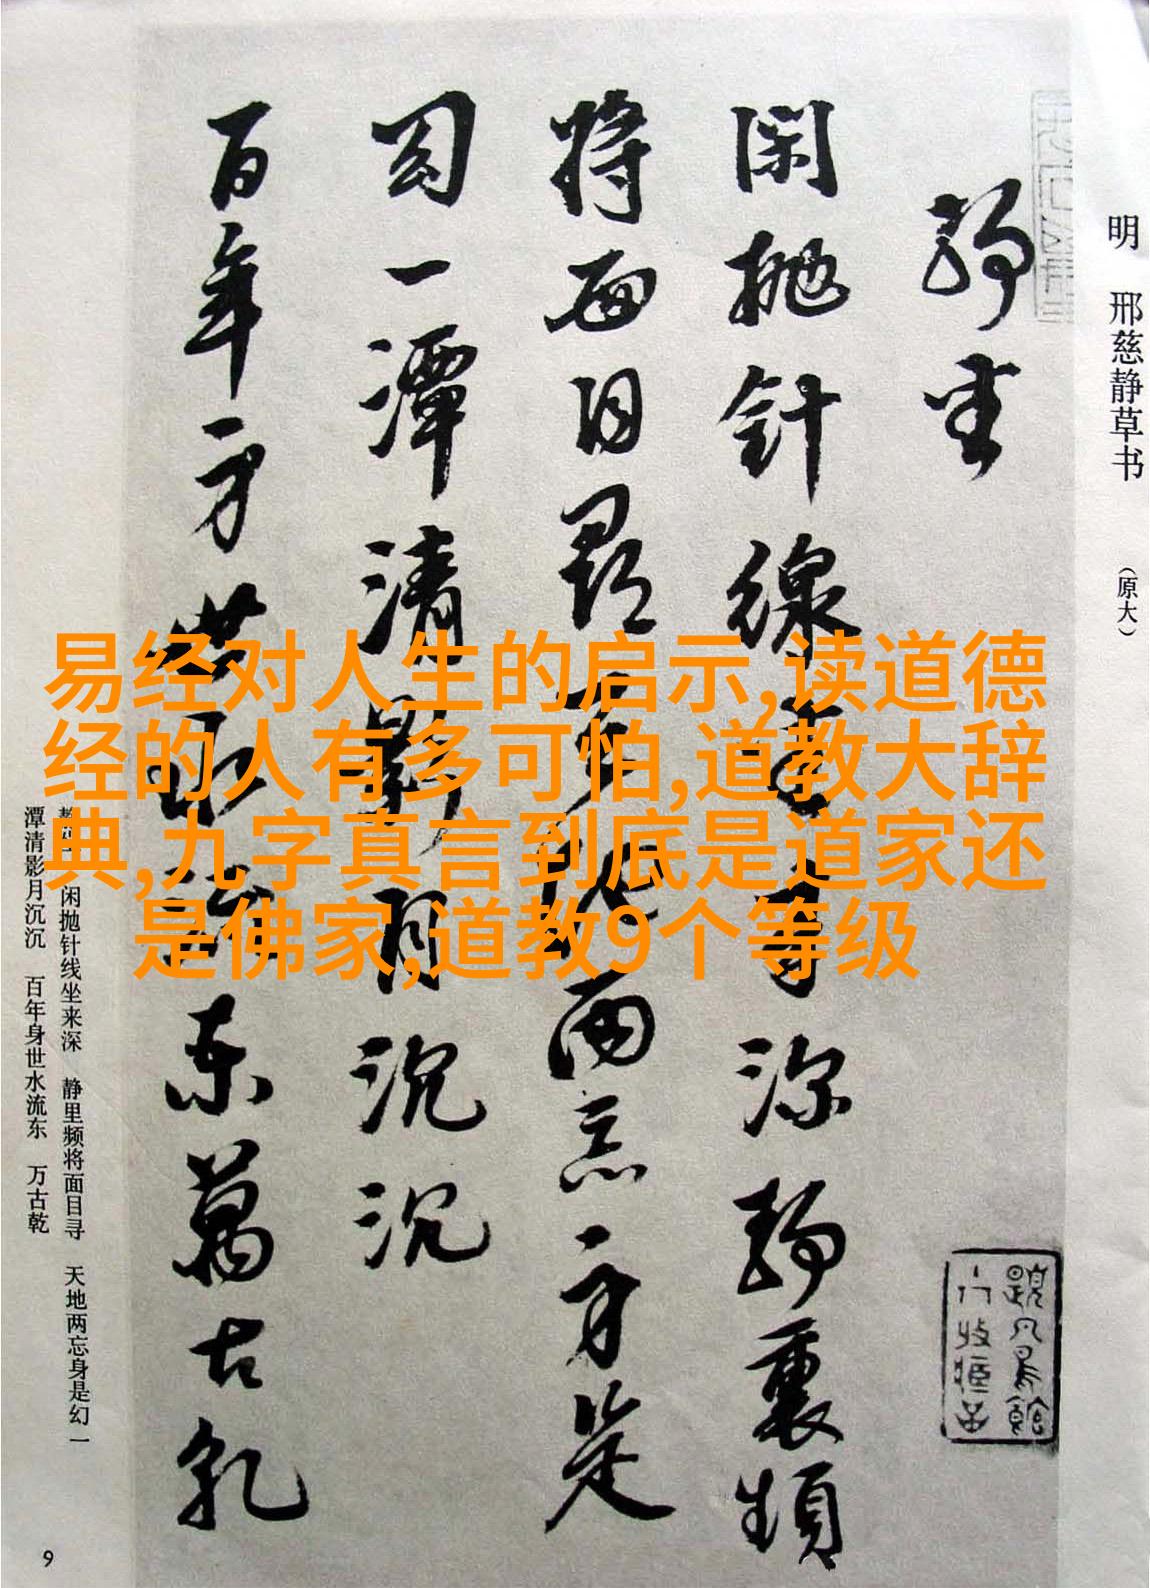 明 邢慈静草书 （原大）
静坐
閑抛針線坐来深静裏頻
将面目尋天地两忘身是
幻一潭清影月沉沉
百年身世水流东萬古乾
易经对人生的启示,读道德
经的人有多可怕,道教大辞
典,九字真言到底是道家还
是佛家,道教9个等级
闲抛针线坐来深 静里频将面目寻 天地两忘身是幻 一
潭清影月沉沉 百年身世水流东 万古乾
9